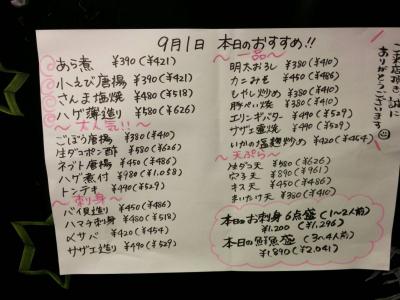 9月1日 本日のおすすめ!!
あら煮 ¥390(¥421)
小えび唐揚 ¥390(¥421)
さんま塩焼 ¥480(¥518)
ハゲ薄造り ¥580(¥626)
〜大人気!!〜
ごぼう唐揚 ¥380(¥410)
生ダコポン酢 ¥580(¥626)
ネブト唐揚 ¥450(¥486)
ハゲ煮付 ¥980(¥1,058)
トンテキ ¥490(¥529)
〜刺身〜
バイ貝造り ¥450(¥486)
ハマチ刺身 ¥480(¥518)
〆サバ ¥420(¥454)
サザエ造り ¥490(¥529)
〜一品〜
明太おろし ¥380(¥410)
カニみそ ¥450(¥486)
もやし炒め ¥380(¥410)
豚ぺい焼 ¥380(¥410)
エリンギバター ¥490(¥529)
サザエ壺焼 ¥490(¥529)
いかの塩麹炒め ¥420(¥454)
〜天ぷら〜
生ダコ天 ¥580(¥626)
穴子天 ¥890(¥961)
キス天 ¥450(¥486)
まいたけ天 ¥380(¥410)
本日のお刺身6点盛(1〜2人前)
¥1,200 (¥1,296)
本日の鮮魚盛(3〜4人前)
¥1,890(¥2,041)
ご来店頂き 誠に
ありがとうございます